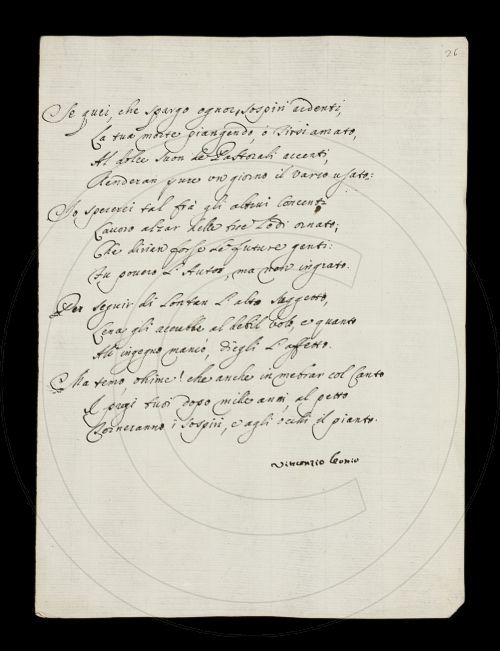 26
Se quei, che spargo ognor, sospiri ardenti,
La tua morte piangendo, ò Tirsi amato,
Al dolce suon de Pastorali accenti,
Renderan pure un giorno il varco usato:
Io spererei tal frà gli altrui concenti
Lavoro alzar delle tue Lodi ornato;
Che dirian forse le future genti:
Fu povero L'Autor, ma non ingrato.
Per seguir di lontan L'alto suggetto,
Lena gli accrebbe al debil volo, e quanto
All' ingegno mancò, diegli L'affetto.
Ma temo, ohime! che anche in mezzo col Canto
I pregi tuoi dopo mille anni, al petto
Torneranno i sospiri, e agli occhi il pianto.
Vincenzio Leonio